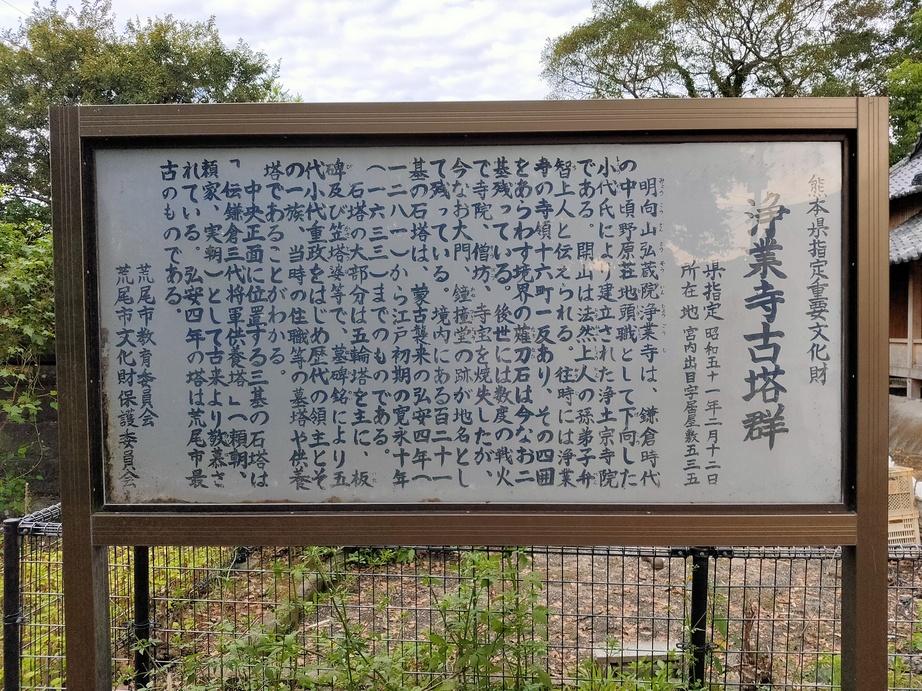 熊本県指定重要文化財
浄業寺古塔群
県指定 昭和五十一年二月十二日
所在地 宮内出目字居屋敷五三五
明向山弘蔵院浄業寺は、鎌倉時代
の中頃野原荘地頭職として下向した
小代氏により建立された浄土宗寺院
である。開山は法然上人の孫弟子弁
智上人と伝えられる。往時には浄業
寺の寺領十六町一反あり、その四囲
をあらわす境界の薙刀石は今なお二
基残っている。後世には数度の戦火
で寺院、僧坊、寺宝を焼失したが、
今なお大門、鐘撞堂の跡が地名とし
て残っている。境内にある百二十一
基の石塔は、蒙古襲来の弘安四年へ
一二八一)から江戸初期の寛永十年
(一六三三)までのものである。
石塔の大部分は五輪塔を主に、板
碑及び笠塔婆等で、墓碑銘により五
代小代重政をはじめ歴代の領主とそ
の一族、当時の住職等の墓塔や供養
塔であることがわかる。
中央正面に位置する三基の石塔は
「伝鎌倉三代将軍供養塔」(頼朝、
頼家、実朝)として古来より敬慕さ
れている。弘安四年の塔は荒尾市最
古のものである。
荒尾市教育委員会
荒尾市文化財保護委員会